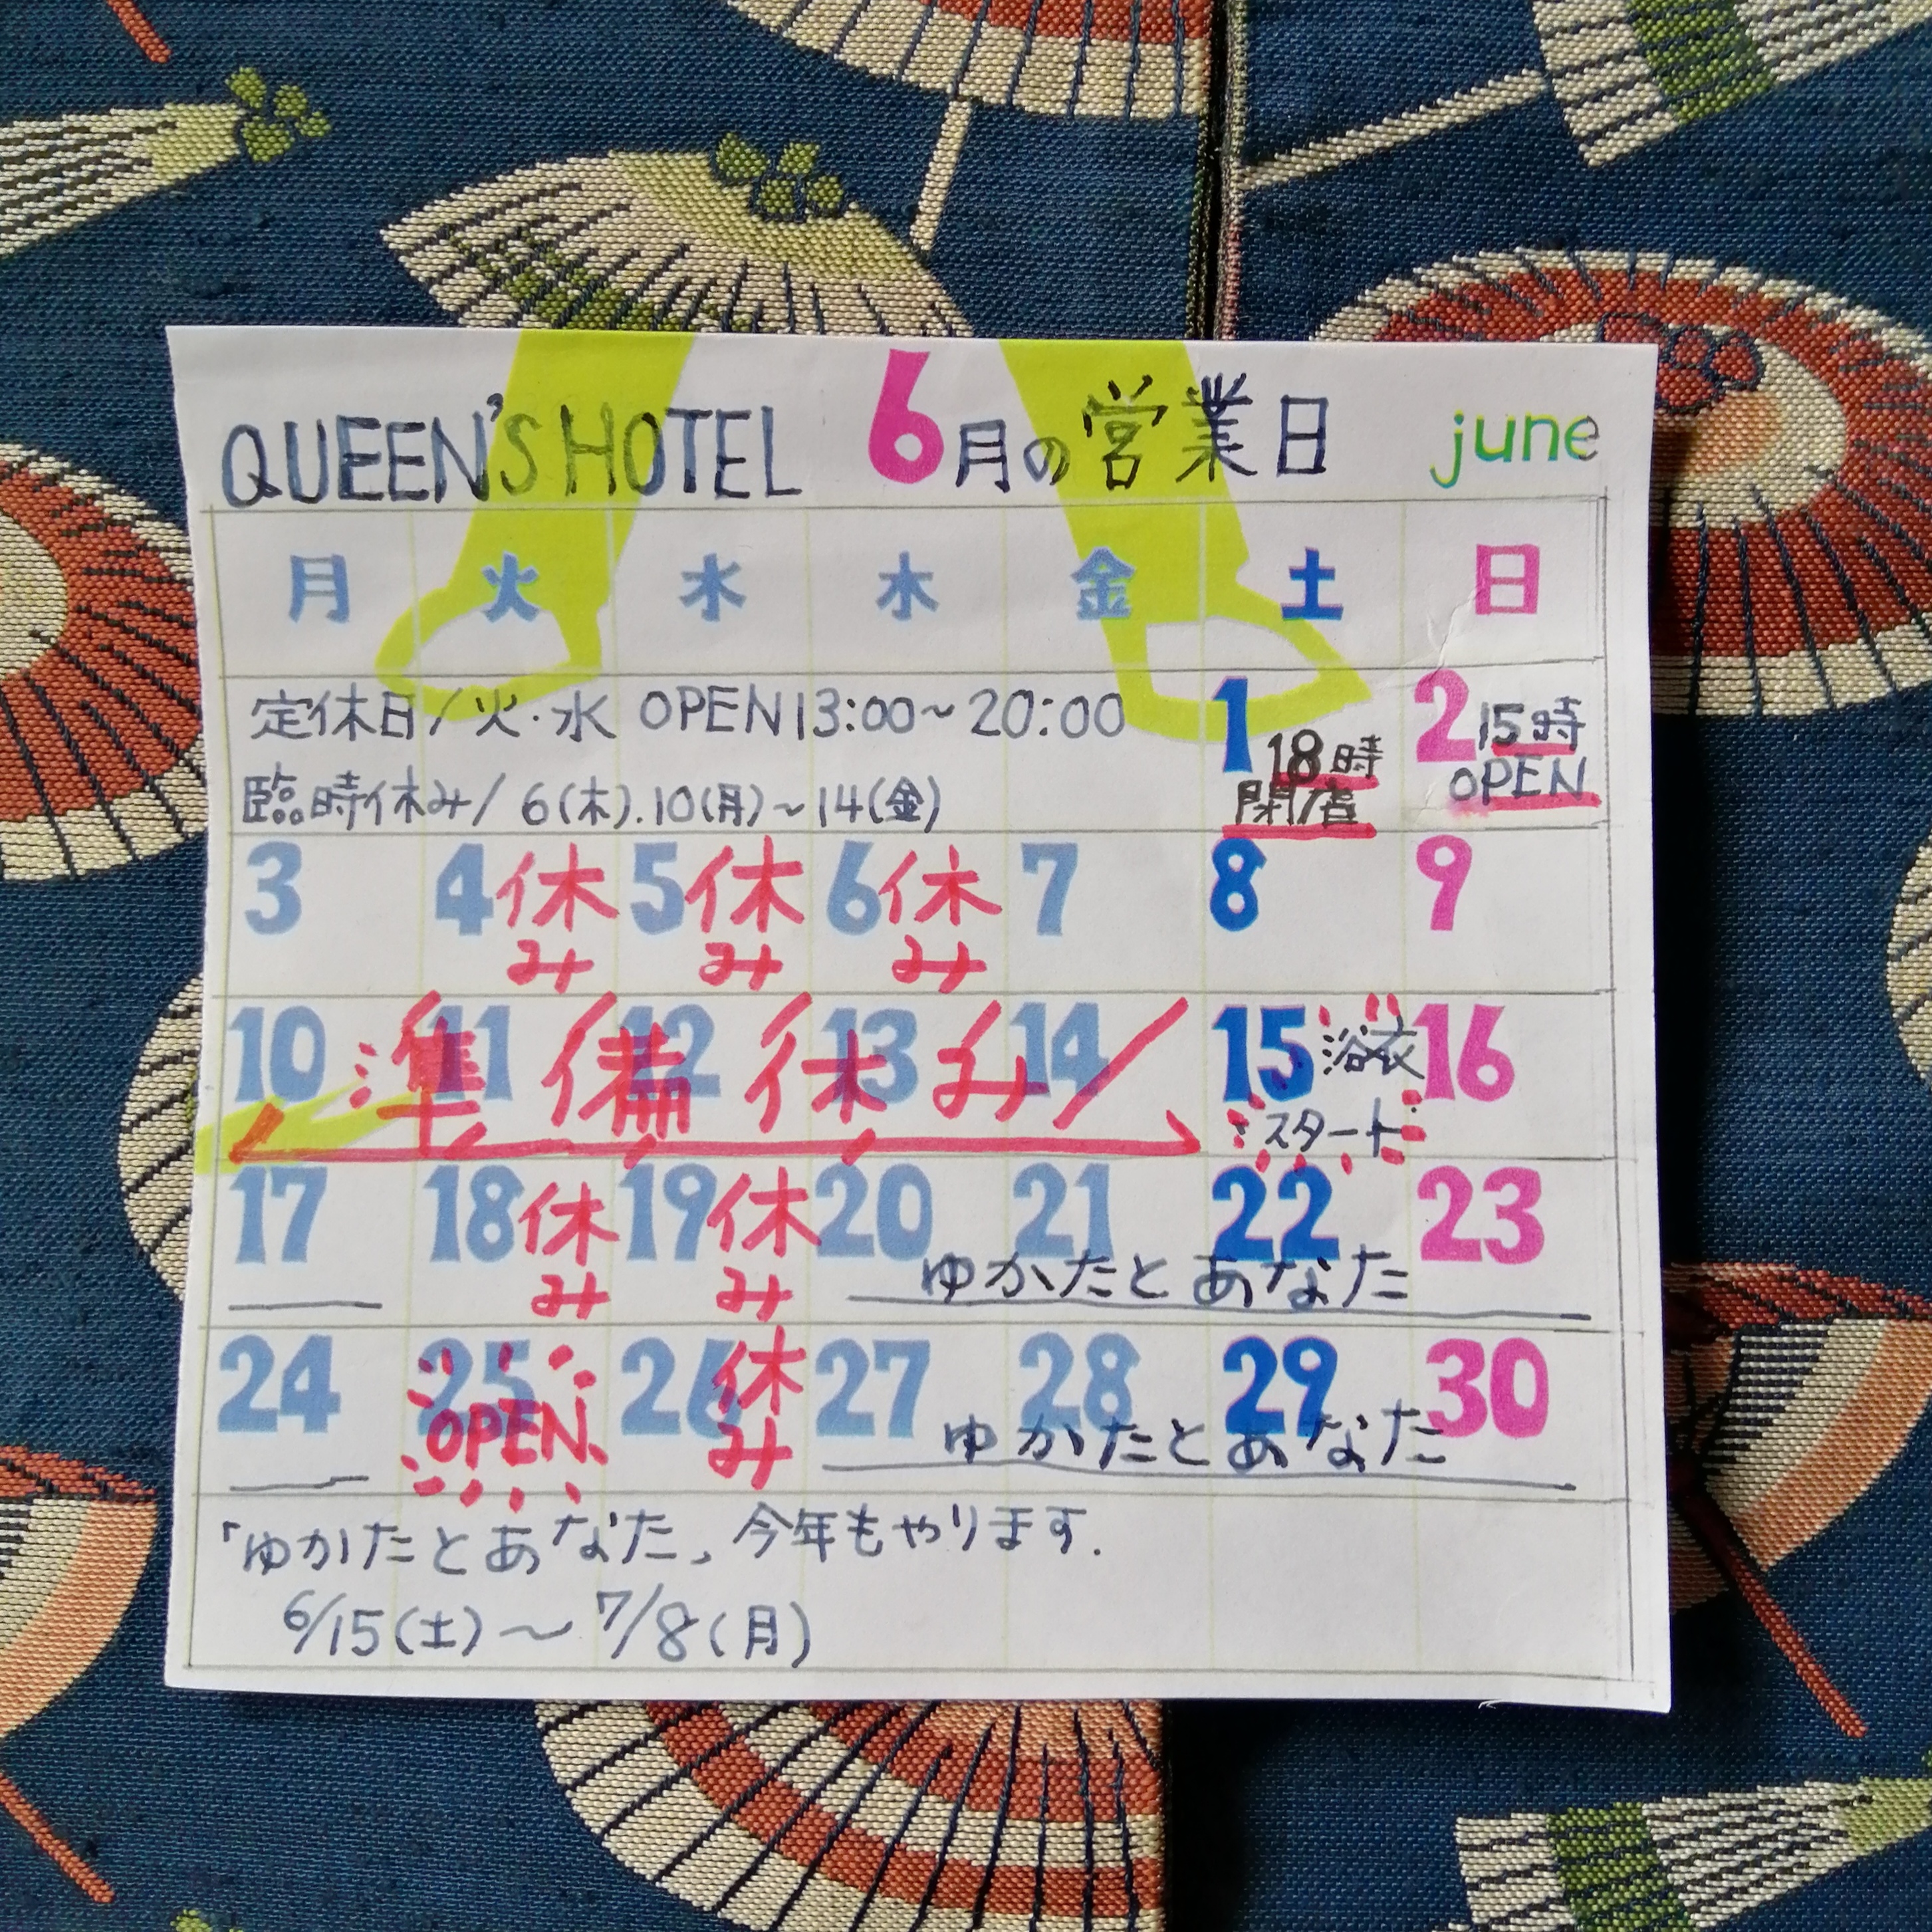 QUEEN'S HOTEL 6月の営業日 june
月 火 水 木 金 土 日
定休日/火・水 OPEN13:00~20:00
臨時休み/6(木).10(月)~14(金)
1 18時
閉店
2 15時
OPEN
3 4休み 5休み 6休み 7 8 9
10 11 12 13 14
準備休み
15 浴衣
スタート
16
17 18休み 19休み 20 21 22 23
ゆかたとあなた
24 25 OPEN 26休み 27 28 29 30
ゆかたとあなた
「ゆかたとあなた」今年もやります.
6/15(土)~7/8(月)